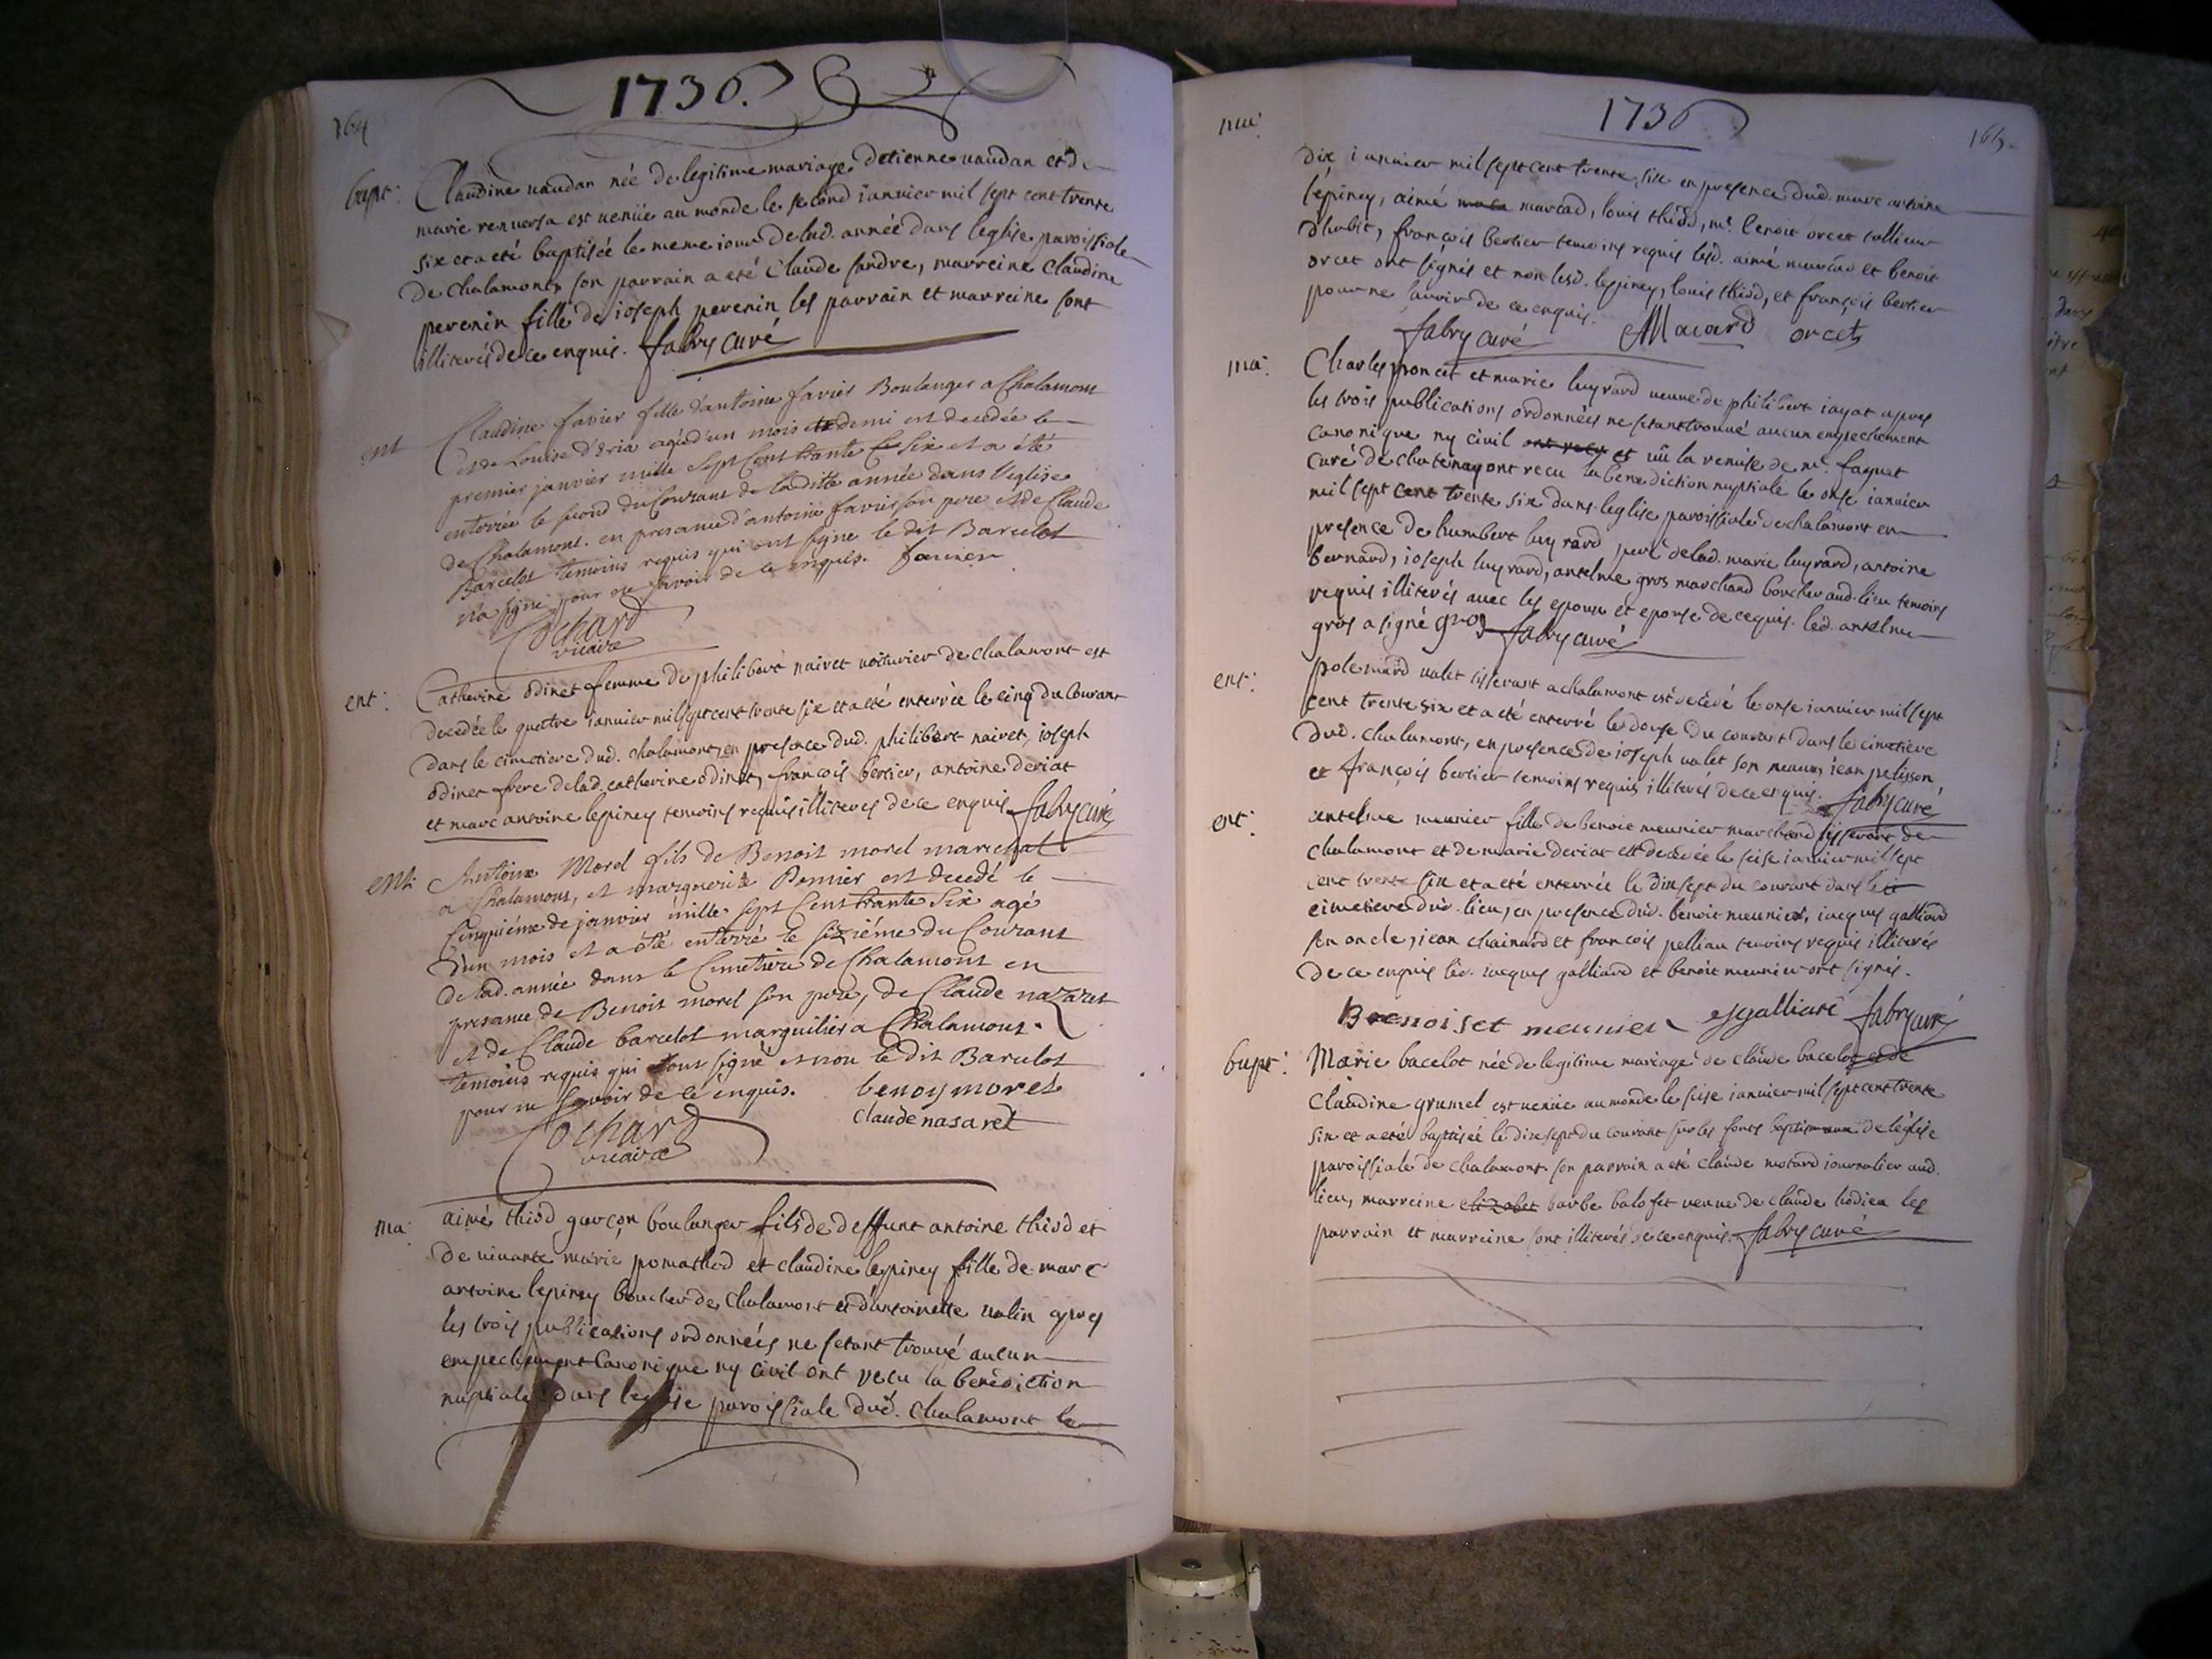 1736.
164
bapt: Claudine vaudan née de legitime mariage detienne vaudan et de
marie renversa est venüe au monde le second ianvier mil sept cent trente
six et a eté baptisée le meme iour de lad. année dans leglise paroissiale
de chalamont, son parrain a eté Claude sandre, marreine Claudine
pevenin fille de ioseph pevenin les parrain et marreine sont
illiterés de ce enquis. fabry curé
ent Claudine favier fille d'antoine favier Boulanger a Chalamont
et de Louise d'Eria agée d'un mois et demi est decedée le
premier janvier mille sept Cent trante Six et a été
enterrée le second du Courant de laditte année dans l'eglise
de Chalamont. en presance d'antoine favier son pere et de Claude
Barcelot temoins requis qui ont signe le dit Barcelot
n'a signe pour ne savoir de ce enquis. favier
Cochard
vicaire
ent: Catherine odinet femme de philibert naivet voiturier de chalamont est
decedée le quatre ianvier mil sept cent trente six et a eté enterrée le cinq du Courant
dans le cimetiere dud. chalamont, en presence dud. philibert naivet, ioseph
odinet frere de lad. catherine odinet, françois bertier, antoine deriat
et marc antoine lepiney temoins requis illiterés de ce enquis fabry curé
ent: Antoine Morel fils de Benoit morel marechal
a Chalamont, et marguerite Bernier est decedé le
Cinquiéme de janvier mille sept Cent trante Six agé
d'un mois et a été enterré le sixiéme du Courant
de lad. année dans le Cimetiere de Chalamont en
presance de Benoit morel son pere, de Claude nazaret
et de Claude barcelot marguilier a Chalamont.
temoins requis qui ont signé et non le dit Barcelot
pour ne savoir de ce enquis. benoy morel
Cochard claude nasaret
vicaire
ma: aimé thiod garçon boulanger fils de deffunt antoine thiod et
de vivante marie pomathod et claudine lepiney fille de marc
antoine lepiney boucher de chalamont et d'antoinette valin apres
les trois publications ordonnées ne setant trouvé aucun
empechement Canonique ny civil ont recu la benediction
nuptiale dans leglise paroissiale dud. chalamont le
1736
165.
dix ianvier mil sept cent trente six en presence dud. marc antoine
lepiney, aimé macard, louis thiod, mr. benoit orcet tallieur
dhabit, françois bertier temoins requis lesd. aimé macard et benoit
orcet ont signés et non lesd. lepiney, louis thiod, et françois bertier
pour ne savoir de ce enquis.
fabry curé AMacard orcet
ma: Charles poncet et marie luyrard veuve de philibert iayat apres
les trois publications ordonnées ne setant trouvé aucun empechement
canonique ny civil ont recu et vû la remise de mr. faguet
curé de chatenay ont recu la benediction nuptiale le onse ianvier
mil sept cent trente six dans leglise paroissiale de chalamont en
presence de humbert luyrard pere de lad. marie luyrard, antoine
bernard, ioseph luyrard, antelme gros marchand boucher aud. lieu temoins
requis illiterés avec les epoux et epouse de ce quis. led. antelme
gros a signé gros fabry curé
ent: polemard valet tisserant a chalamont est decedé le onse ianvier mil sept
cent trente six et a eté enterré le douse du courant dans le cimetiere
dud. chalamont, en presence de ioseph valet son neveu, iean pelisson
et françois bertier temoins requis illiterés de ce enquis. fabry curé
ent: antelme meunier fille de benoit meunier marchand tisserant de
chalamont et de marie deriat est decedée le seise ianvier mil sept
cent trente six et a eté enterrée le dix sept du courant dans le
cimetiere dud. lieu, en presence dud. benoit meunier, iacques galliard
son oncle, iean chainard et francois pelliau temoins requis illiterés
de ce enquis led. iacques galliard et benoit meunier ont signés.
Benoiset meunier galliard fabry curé
bapt: Marie bacelot née de legitime mariage de claude bacelot et de
claudine grumel est venüe au monde le seise ianvier mil sept cent trente
six et a eté baptisée le dix sept du courant sur les fonts baptismaux de leglise
paroissiale de chalamont son parrain a eté claude motard iournalier aud.
lieu, marreine elizabet barbe balofet veuve de claude bodieu les
parrain et marreine sont illiterés de ce enquis. fabry curé